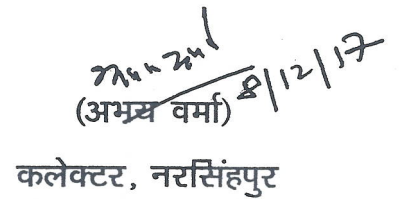 8/12/17
(अभय वर्मा)
कलेक्टर, नरसिंहपुर